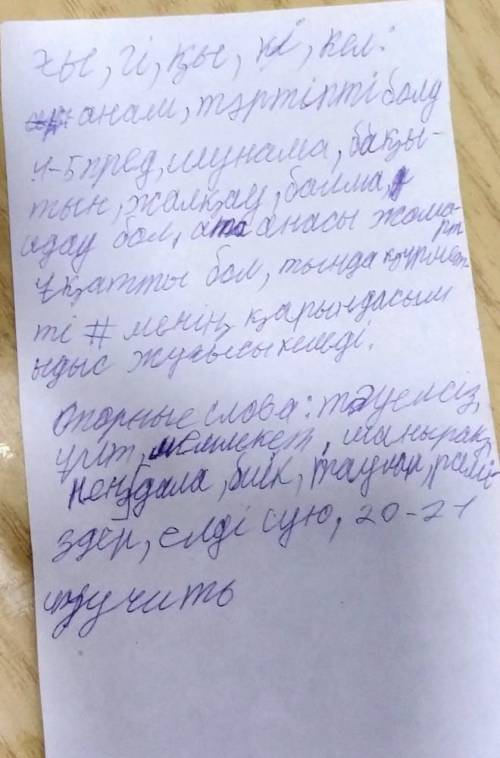 ғы, гі, қы, кі, кел:
анам, тәртіпті болу
4-5 пред, шунама, бақы-
тын, жалқау, балма,
идау бол, ата анасы жома-
рт
Ұқатты бол, тыңда құрмет
ті # менің қарындасым
ыдыс жуғысы келеді.
Опорные слова: тәуелсіз,
ұлт, мемлекет, шаңырақ,
кең дала, биік, таулар, рәмі
здер, елді сүю, 20-21
изучить